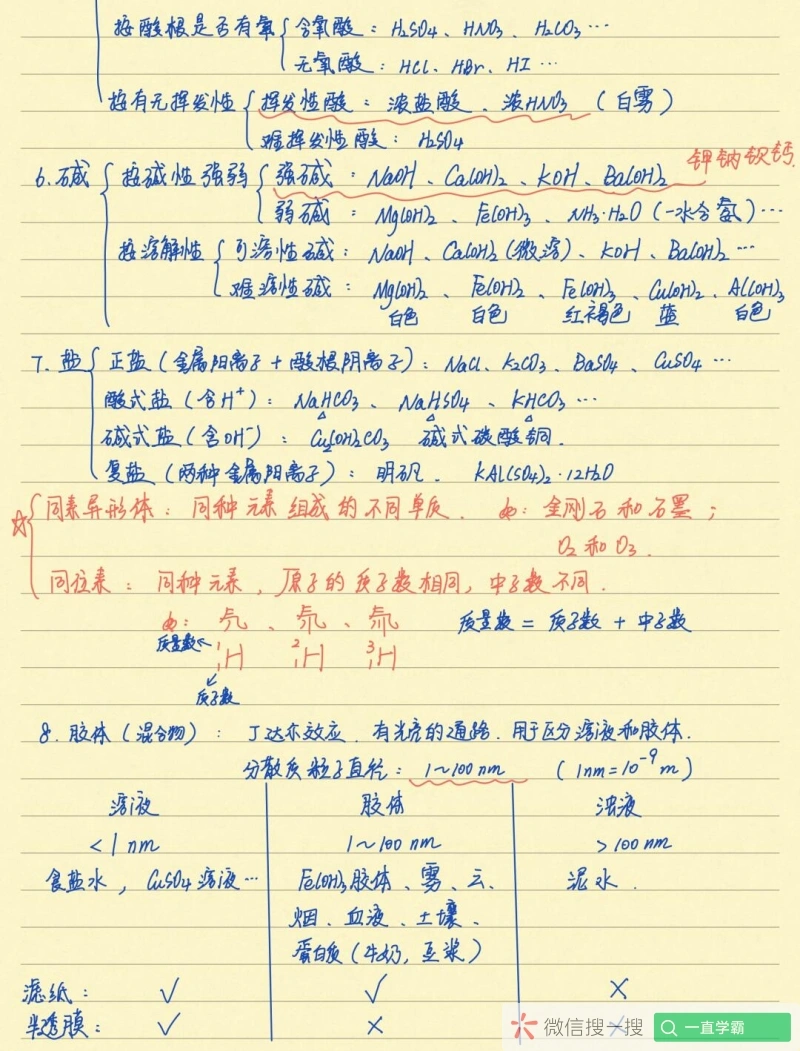 按酸根是否有氧 { 含氧酸：H₂SO₄、HNO₃、H₂CO₃…
无氧酸：HCl、HBr、HI…
按有无挥发性 { 挥发性酸：浓盐酸、浓HNO₃（白雾）
难挥发性酸：H₂SO₄
钾钠钡钙.
6.碱 { 按碱性强弱 { 强碱：NaOH、Ca(OH)₂、KOH、Ba(OH)₂
弱碱：Mg(OH)₂、Fe(OH)₃、NH₃·H₂O（一水合氨）…
按溶解性 { 可溶性碱：NaOH、Ca(OH)₂（微溶）、KOH、Ba(OH)₂…
难溶性碱：Mg(OH)₂、Fe(OH)₂、Fe(OH)₃、Cu(OH)₂、Al(OH)₃
白色 白色 红褐色 蓝 白色
7.盐 { 正盐（金属阳离子+酸根阴离子）：NaCl、K₂CO₃、BaSO₄、CuSO₄…
酸式盐（含H⁺）：NaHCO₃、NaHSO₄、KHCO₃…
碱式盐（含OH⁻）：Cu₂(OH)₂CO₃ 碱式碳酸铜.
复盐（两种金属阳离子）：明矾. KAl(SO₄)₂·12H₂O
☆ { 同素异形体：同种元素组成的不同单质. 如：金刚石和石墨；
O₂和O₃.
同位素：同种元素，原子的质子数相同，中子数不同.
如：氕、氘、氚 质量数=质子数+中子数
质量数← ¹₁H ²₁H ³₁H
质子数
8.胶体（混合物）：丁达尔效应.有光亮的通路.用于区分溶液和胶体.
分散质粒子直径：1~100nm （1nm=10⁻⁹m）
溶液 胶体 浊液
<1nm 1~100nm >100nm
食盐水，CuSO₄溶液… Fe(OH)₃胶体、雾、云、 泥水.
烟、血液、土壤、
蛋白质（牛奶，豆浆）
滤纸：√ √ ×
半透膜：√ × ×
微信搜一搜 一直学霸